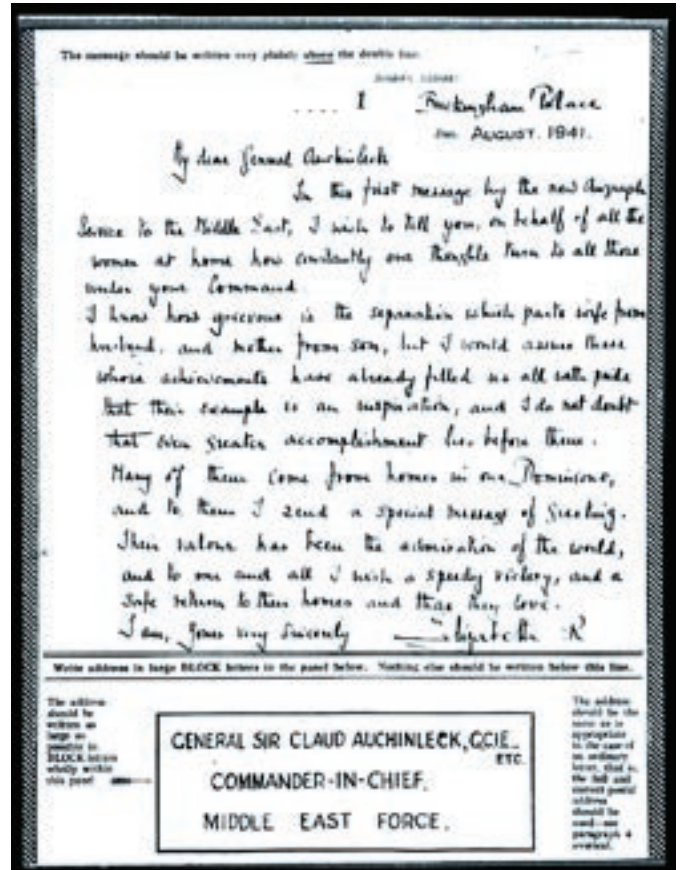 The message should be written very plainly above the double line.
1 Buckingham Palace
AUGUST. 1941.
My dear General Auchinleck
In this first message by the new Airgraph
Service to the Middle East, I wish to tell you, on behalf of all the
women at home how constantly our thoughts turn to all those
under your Command.
I know how grievous is the separation which parts wife from
husband, and mother from son, but I would assure those
whose achievements have already filled us all with pride
that their example is an inspiration, and I do not doubt
that even greater accomplishment lies before them.
Many of them come from homes in our Dominions,
and to them I send a special message of Greeting.
Their valour has been the admiration of the world,
and to one and all I wish a speedy victory, and a
safe return to their homes and those they love.
I am, Yours very sincerely Elizabeth R
Write address in large BLOCK letters in the panel below. Nothing else should be written below this line.
The address
should be
written as
large as
possible in
BLOCK letters
wholly within
this panel
GENERAL SIR CLAUD AUCHINLECK, GCIE.
ETC.
COMMANDER-IN-CHIEF.
MIDDLE EAST FORCE.
The address
should be the
same as is
appropriate
in the case of
an ordinary
letter, that is,
the full and
correct postal
address
should be
used, see
paragraph 4
overleaf.